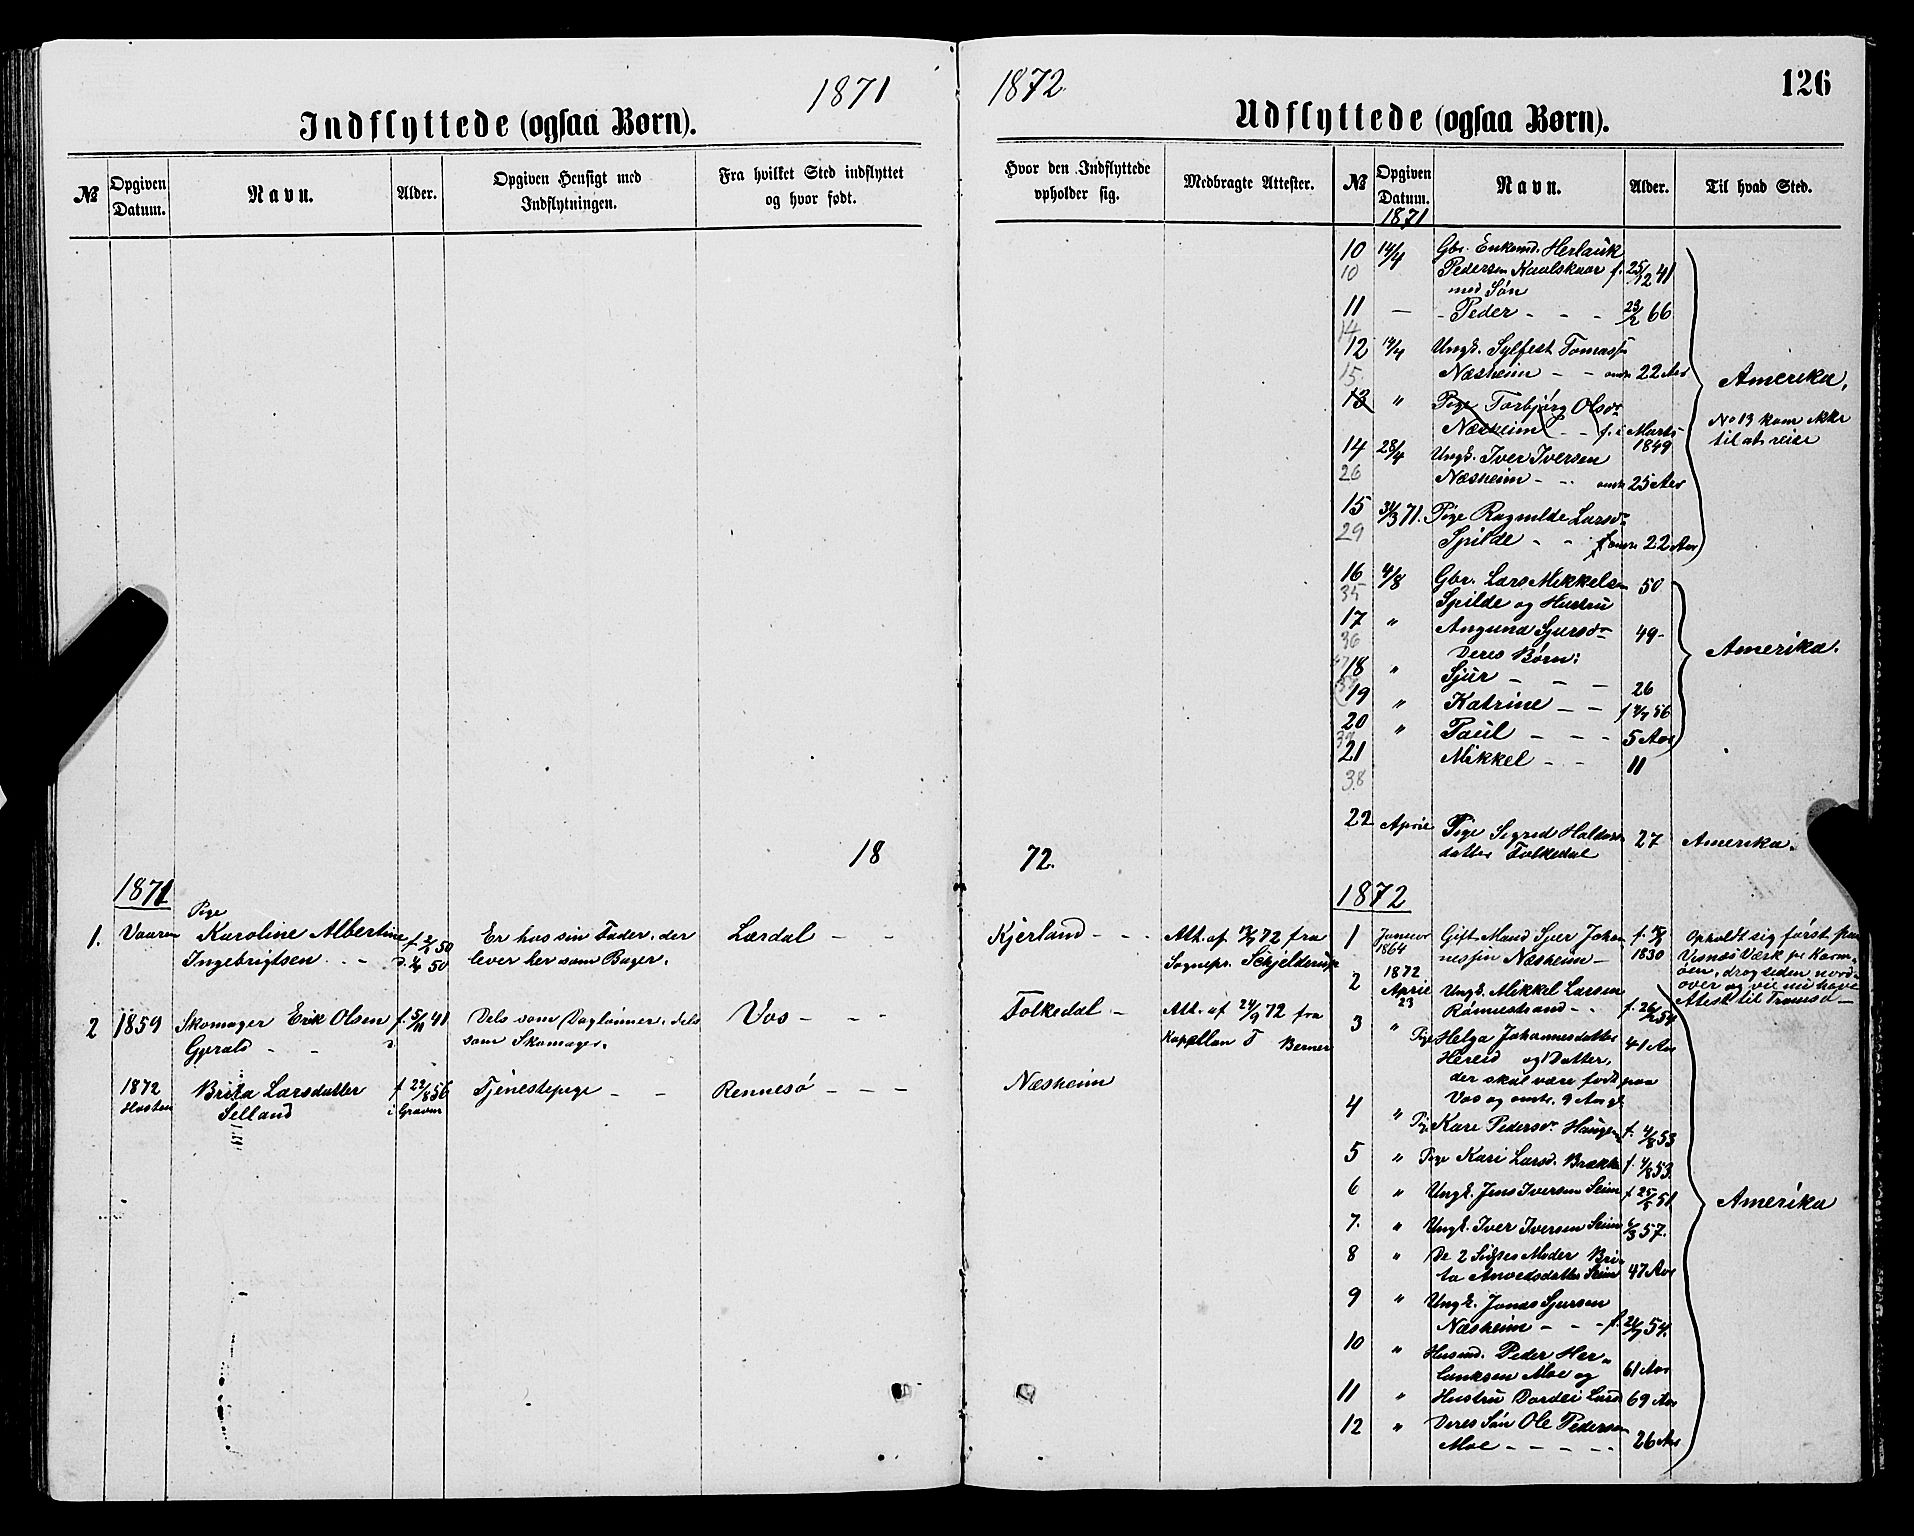 1871
Indflyttede (ogsaa Børn).
№
Opgiven
Datum.
Navn.
Alder.
Opgiven Hensigt med
Indflytningen.
Fra hvilket Sted indflyttet
og hvor født.
18
1871
1. Vaaren Pige
Karoline Albertine
Ingebrigtsen f. 2/1 50
Er hos sin Fader, der
lever her som Bager.
Lærdal - -
2 1859 Skomager Erik Olsen f. 5/11 41
Gjerald - -
Dels som Daglønner, dels
som Skomager.
Vos - - -
1872
Høsten
Brita Larsdatter f. 22/8 56
Selland i Graven
Tjenestepige - -
Rennesö - - -
1872
126
Udflyttede (ogsaa Børn).
Hvor den Indflyttede
opholder sig.
Medbragte Attester.
№
Opgiven
Datum.
Navn.
Alder.
Til hvad Sted.
72.
Kjerland - - -
Att. af 72 fra
Sognepr. Schjelderup
Folkedal -
Att. af 24/9 72 fra
Kapellan T Berner
Næsheim
1871
10 14/4 Gbr. Enkemd. Herlauk
10 Pedersen Kvalskaar f. 25/12 41
med Sön
11 — - Peder - - - 23/2 66
14
12 14/4 Ungk. Sylfest Tomass
15. Næsheim - - omtr 22 Aar
13 " Pige Torbjørg Olsdr
Næsheim - - f. i Marts
1849
14 28/4 Ungk. Iver Iversen
26 Næsheim - - omtr 25 Aar
Amerika.
No 13 kom ikke
til at reise
15 31/3 71. Pige Ragnilde Larsdr
29 Spilde - - omtr. 22 Aar
16 4/8 Gbr. Lars Mikkelsen 50
35 Spilde og Hustru
17 " Anguna Sjursdr 49 -
36 Deres Børn:
18 " Sjur - - - 26
19 " Katrine - - f 56
20 " Paul - - - 5 Aar
21 Mikkel - - 11
38
Amerika.
22 April Pige Sigrid Haldors 27 Amerika.
datter Folkedal
1872
1 Januar
1864 Gift Mand Sjur Johan
nessen Næsheim - f.
1830
Opholdt sig först paa
Visnæs Værk pr Karm-
öen, drog siden nord-
over og vil nu have
Attest til Tromsö -
2 1872
April
23 Ungk. Mikkel Larsen
Rønnestrand - - f. 26/2 54
3 " Pige Helga Johannesdatter 41 Aar
Hereid og 1 Datter,
der skal være født paa
Vos og omtr. 9 Aar gl.
4 " Pige Kari Pedersdr Haugen f. 4/8 53
5 " Pige Kari Larsd. Brække f. 4/8 53.
6 " Ungk. Jens Iversen Seim f 25/5 51.
7. " Ungk. Iver Iversen Seim 6/3 57.
8 " De 2 Sidstes Moder Bri-
ta Anvedsdatter Seim 47 Aar
9 " Ungk. Jonas Sjursen
Næsheim - - - f. 54.
10 " Husmd. Peder Her-
lauksen Moe og 61 Aar
11 " Hustru Dordei Larsd 69 Aar
12 " Deres Sön Ole Pedersen
Moe - - - - - 26 Aar
Amerika